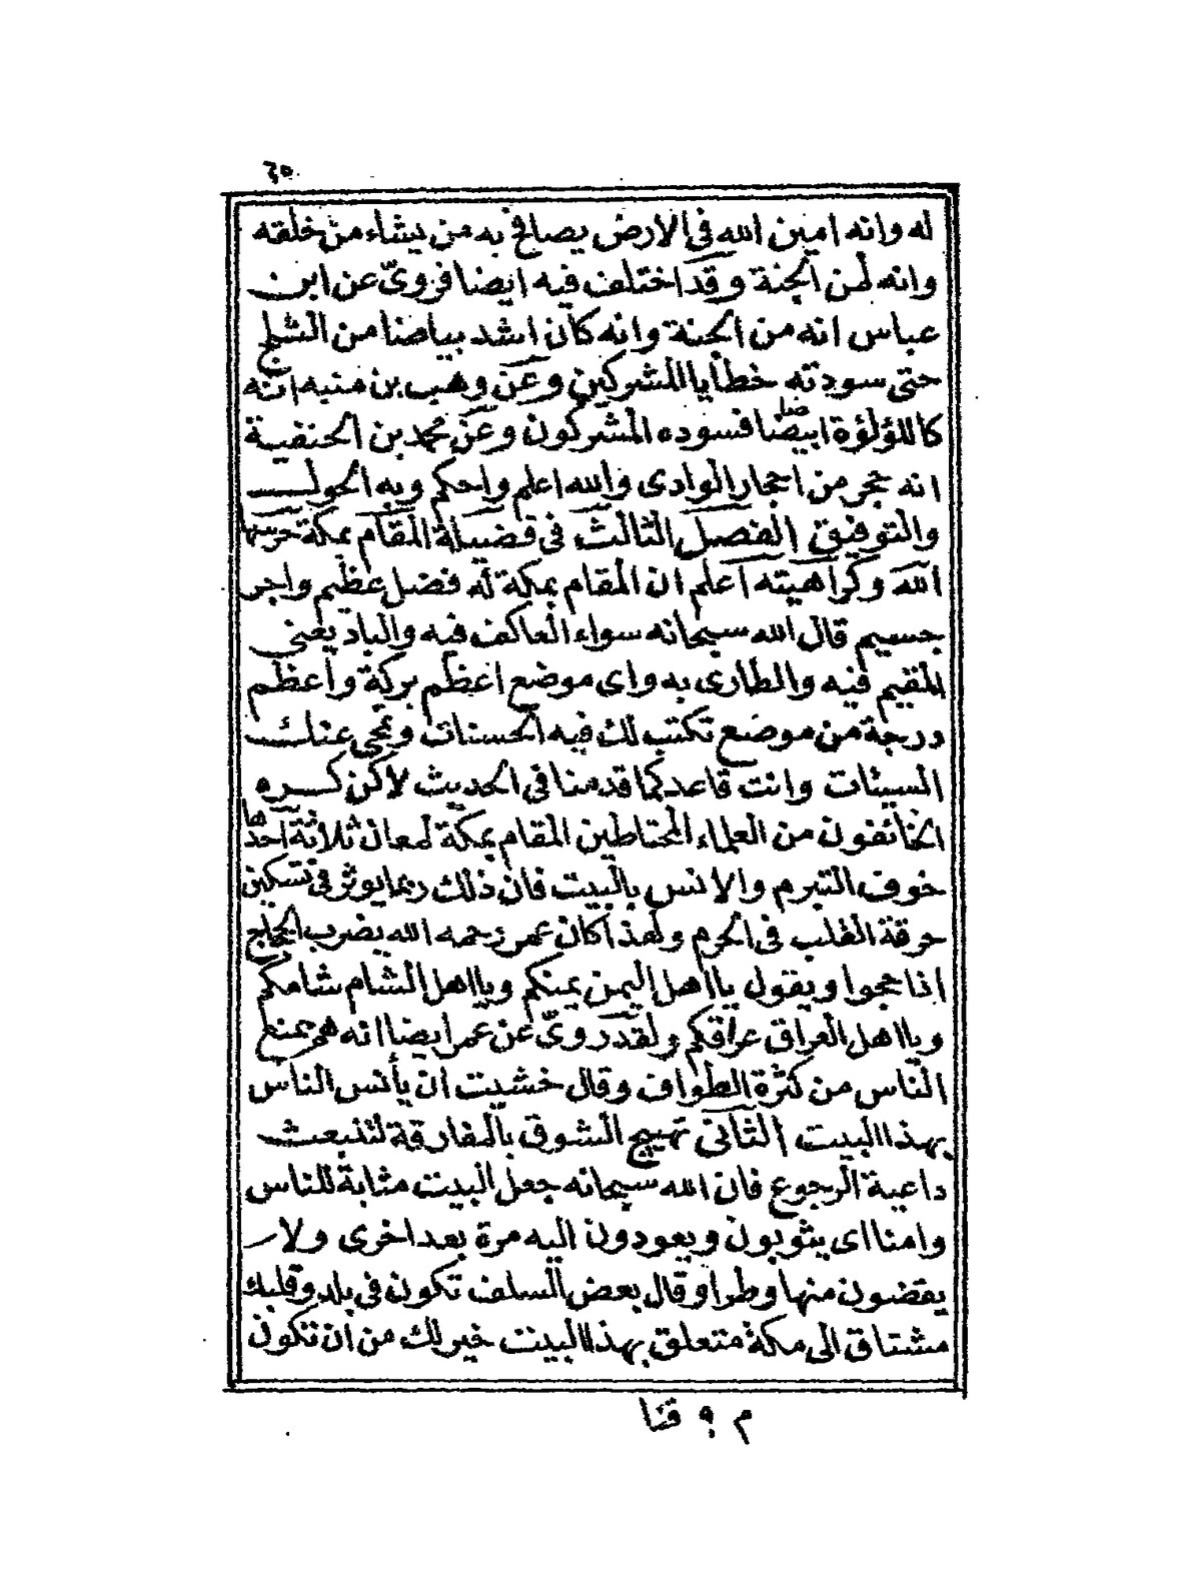 ٦٥
له وانه امين الله فى الارض يصافح به من يشاء من خلقه
وانه لمن الجنة وقد اختلف فيه ايضا فروىّ عن ابن
عباس انه من الجنة وانه كان اشد بياضا من الثلج
حتى سودته خطايا المشركين وعن وهب بن منبه انه
كاللؤلؤة ابيضا فسوده المشركون وعن محمد بن الحنفية
انه حجر من احجار الوادى والله اعلم واحكم وبه الحول
والتوفيق الفصل الثالث فى فضيلة المقام بمكة حرسها
الله وكراهيته اعلم ان المقام بمكة له فضل عظيم واجر
جسيم قال الله سبحانه سواء العاكف فيه والباد يعنى
المقيم فيه والطارى به واى موضع اعظم بركة واعظم
درجة من موضع تكتب لك فيه الحسنات وتمحى عنك
السيئات وانت قاعد كما قدمنا فى الحديث لاكن كره
الخائفون من العلماء المحتاطين المقام بمكة لمعان ثلاثة احدها
خوف التبرم والانس بالبيت فان ذلك ربما يوثر فى تسكين
حرقة القلب فى الحرم ولهذا كان عمر رحمه الله يضرب الحجاج
اذا حجوا ويقول يا اهل اليمن يمنكم ويا اهل الشام شامكم
ويا اهل العراق عراقكم ولقد روىّ عن عمر ايضا انه همّ بمنع
الناس من كثرة الطواف وقال خشيت ان يأنس الناس
بهذا البيت الثانى تهييج الشوق بالمفارقة لتنبعث
داعية الرجوع فان الله سبحانه جعل البيت مثابة للناس
وامنا اى يثوبون ويعودون اليه مرة بعد اخرى ولا
يقضون منها وطرا وقال بعض السلف تكون فى بلد وقلبك
مشتاق الى مكة متعلق بهذا البيت خير لك من ان تكون
م ٩ قنا